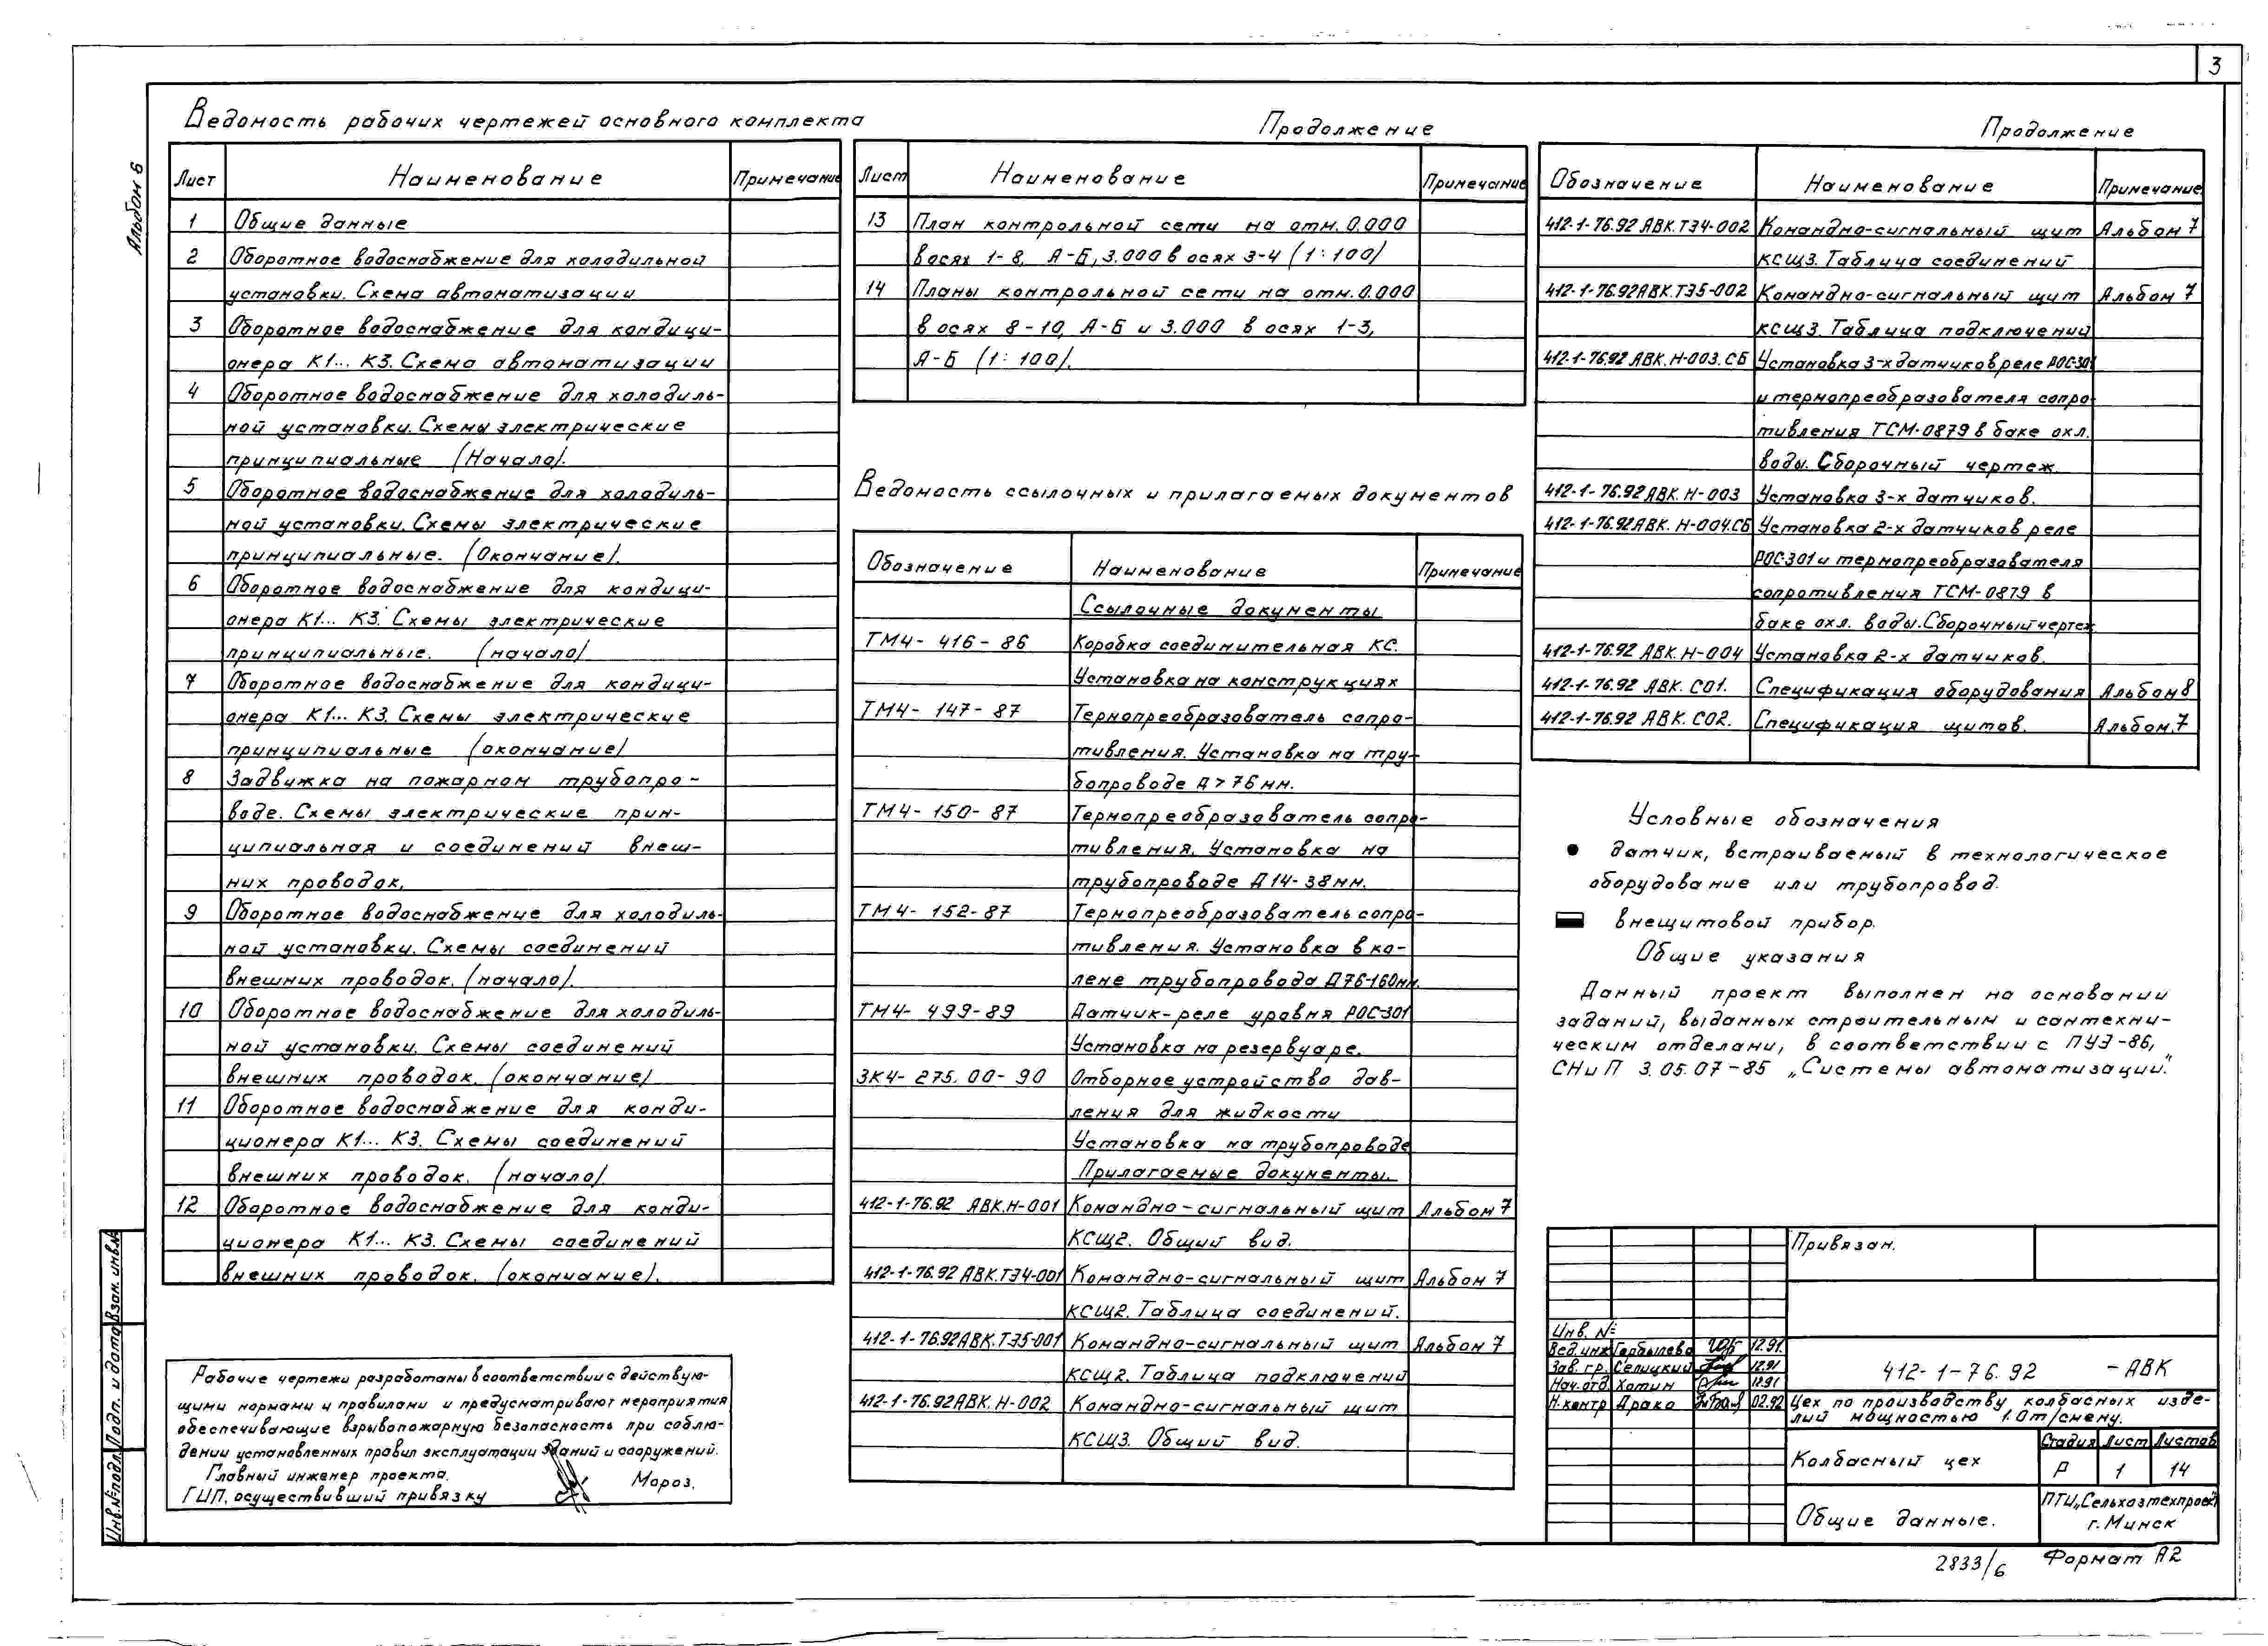 3
Альбом 6
Ведомость рабочих чертежей основного комплекта
Лист Наименование Примечание
1 Общие данные
2 Оборотное водоснабжение для холодильной
установки. Схема автоматизации
3 Оборотное водоснабжение для кондици-
онера К1... К3. Схема автоматизации
4 Оборотное водоснабжение для холодиль-
ной установки. Схемы электрические
принципиальные (Начало).
5 Оборотное водоснабжение для холодиль-
ной установки. Схемы электрические
принципиальные. (Окончание).
6 Оборотное водоснабжение для кондици-
онера К1... К3. Схемы электрические
принципиальные. (начало)
7 Оборотное водоснабжение для кондици-
онера К1... К3. Схемы электрические
принципиальные (окончание)
8 Задвижка на пожарном трубопро-
воде. Схемы электрические прин-
ципиальная и соединений внеш-
них проводок.
9 Оборотное водоснабжение для холодиль-
ной установки. Схемы соединений
внешних проводок. (начало).
10 Оборотное водоснабжение для холодиль-
ной установки. Схемы соединений
внешних проводок. (окончание)
11 Оборотное водоснабжение для конди-
ционера К1... К3. Схемы соединений
внешних проводок. (начало).
12 Оборотное водоснабжение для конди-
ционера К1... К3. Схемы соединений
внешних проводок. (окончание).
Рабочие чертежи разработаны в соответствии с действую-
щими нормами и правилами и предусматривают мероприятия
обеспечивающие взрывопожарную безопасность при соблю-
дении установленных правил эксплуатации зданий и сооружений.
Главный инженер проекта.
Мороз.
ГИП, осуществивший привязку
Продолжение
Лист Наименование Примечание
13 План контрольной сети на отм. 0.000
в осях 1-8, А-Б, 3.000 в осях 3-4 (1:100)
14 Планы контрольной сети на отм. 0.000
в осях 8-10, А-Б и 3.000 в осях 1-3,
А-Б (1:100).
Ведомость ссылочных и прилагаемых документов
Обозначение Наименование Примечание
Ссылочные документы
ТМ4-416-86 Коробка соединительная КС.
Установка на конструкциях
ТМ4-147-87 Термопреобразователь сопро-
тивления. Установка на тру-
бопроводе Д>76мм.
ТМ4-150-87 Термопреобразователь сопро-
тивления. Установка на
трубопроводе Д14-38мм.
ТМ4-152-87 Термопреобразователь сопро-
тивления. Установка в ко-
лене трубопровода Д76-160мм.
ТМ4-499-89 Датчик-реле уровня РОС-301
Установка на резервуаре.
ЗК4-275.00-90 Отборное устройство дав-
ления для жидкости
Установка на трубопроводе
Прилагаемые документы.
412-1-76.92 АВК.Н-001 Командно-сигнальный щит Альбом 7
КСЩ2. Общий вид.
412-1-76.92 АВК.ТЭ4-001 Командно-сигнальный щит Альбом 7
КСЩ2. Таблица соединений.
412-1-76.92 АВК.ТЭ5-001 Командно-сигнальный щит Альбом 7
КСЩ2. Таблица подключений
412-1-76.92 АВК.Н-002 Командно-сигнальный щит
КСЩ3. Общий вид.
Продолжение
Обозначение Наименование Примечание
412-1-76.92 АВК.ТЭ4-002 Командно-сигнальный щит Альбом 7
КСЩ3. Таблица соединений
412-1-76.92 АВК.ТЭ5-002 Командно-сигнальный щит Альбом 7
КСЩ3. Таблица подключений
412-1-76.92 АВК.Н-003.СБ Установка 3-х датчиков реле РОС-301
и термопреобразователя сопро-
тивления ТСМ-0879 в баке охл.
воды. Сборочный чертеж.
412-1-76.92 АВК.Н-003 Установка 3-х датчиков.
412-1-76.92 АВК.Н-004.СБ Установка 2-х датчиков реле
РОС-301 и термопреобразователя
сопротивления ТСМ-0879 в
баке охл. воды. Сборочный чертеж
412-1-76.92 АВК.Н-004 Установка 2-х датчиков.
412-1-76.92 АВК.СО1. Спецификация оборудования Альбом 8
412-1-76.92 АВК.СО2. Спецификация щитов. Альбом 7
Условные обозначения
датчик, встраиваемый в технологическое
оборудование или трубопровод.
внещитовой прибор.
Общие указания
Данный проект выполнен на основании
заданий, выданных строительным и сантехни-
ческим отделами, в соответствии с ПУЭ-86,
СНиП 3.05.07-85 „Системы автоматизации."
Привязан.
Инв. №
Вед. инж Горбылева 12.91.
Зав. гр. Селицкий 12.91
Нач. отд. Хотин 12.91
Н. контр Драко 02.92
412-1-76.92 -АВК
Цех по производству колбасных изде-
лий мощностью 1.0т/смену.
Колбасный цех
Стадия Лист Листов
Р 1 14
Общие данные.
ПТИ „Сельхозтехпроект"
г. Минск
2833/6 Формат А2
Взам. инв.№
Подп. и дата
Инв.№подл.